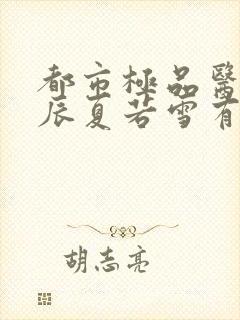 都市極品醫
辰夏若雪有
胡志亮